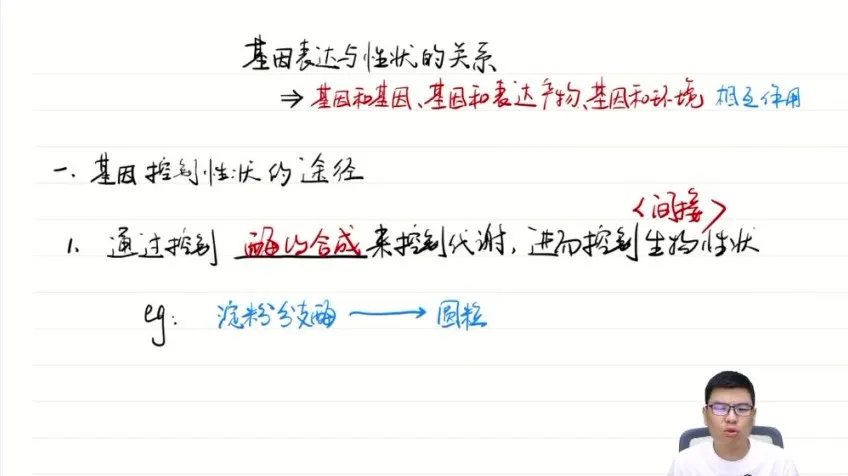 基因表达与性状的关系
⇒ 基因和基因、基因和表达产物、基因和环境 相互作用
一. 基因控制性状的途径
<间接>
1. 通过控制 酶的合成来控制代谢, 进而控制生物性状
eg: 淀粉分支酶 → 圆粒